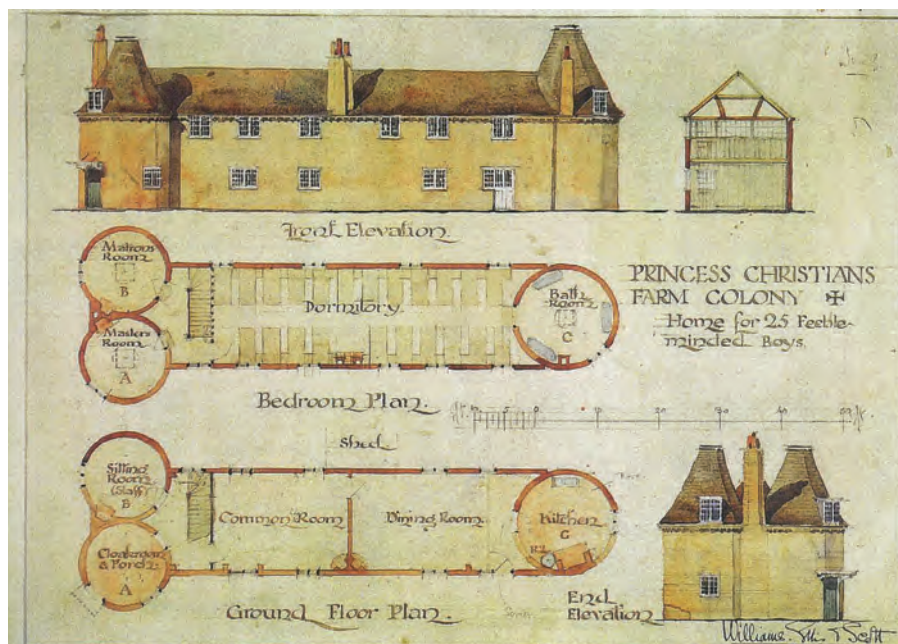 Front Elevation.
Matrons
Room
B
Masters
Room
A
Dormitory.
Bath
Room
C
Bedroom Plan.
PRINCESS CHRISTIANS
FARM COLONY ✠
Home for 25 Feeble-
minded Boys.
Ft.
10
5
0
10
20
30
40
50
Ft.
Shed
Sitting
Room
(Staff)
B
Cloakroom
& Porch
A
Common Room
Dining Room
Kitchen
C
Ground Floor Plan.
End
Elevation
Scott